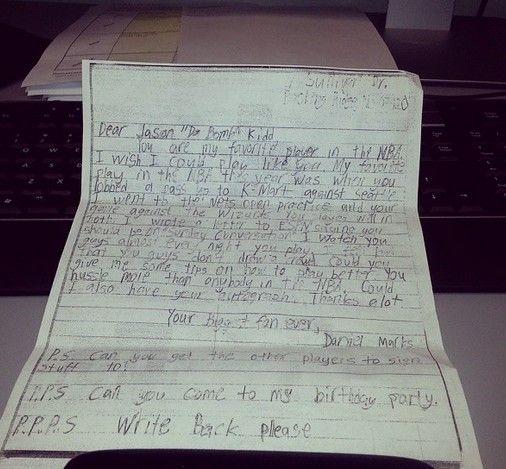 7 Summer Dr.
Basking Ridge
Dear Jason "Da Bomb" Kidd
You are my favorite player in the NBA.
I wish I could play like you. My favorite
play in the NBA this year was when you
lobbed a pass up to K-Mart against Seattle
I went to the nets open practice and your
game against the Wizards.
I wrote a letter to ESPN saying you
should be on "Sunday Conversation". I watch you
guys almost every night you play.
that you guys don't draw a crowd. Could you
give me some tips on how to play better. You
hussle more than anybody in the NBA. Could
I also have your autograph. Thanks alot
Your Biggest fan ever,
Daniel Marks
P.S Can you get the other players to sign
stuff to!
P.P.S Can you come to my birthday party.
P.P.P.S Write Back please